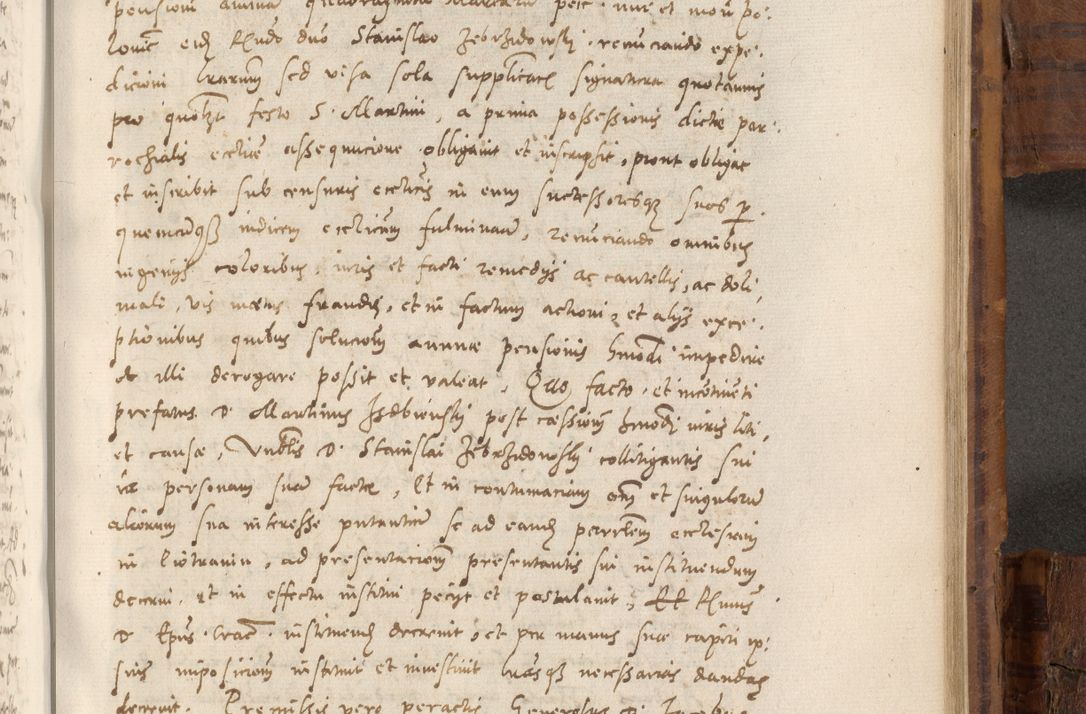 pensionem annuam quadraginta Marcarum pecie mee et mon po:
lonice eidem Rndo dno Stanislao Zebrzidowsky renunciando expe:
dicioni lrarum sed visa sola supplicationis signatura quotannis
pro quolibet festo S. Martini, a prima possessionis dictae par:
rochialis ecclie assequucione obligavit et inscripsit, prout obligat
et inscribit sub censuris ecclicis in eum successoresque suos p.
quemcunque iudicem ecclicum fulminand, renunciando omnibus
ingenijs coloribus iuris et facti remedijs ac cautellis, ac doli
mali, vis metus fraudis, et in factum actioni, et alijs exce:
ptionibus quibus solucioni annuae pensionis hmodi impedire
et illi derogare possit et valeat. Quo facto et incontinenti
prefatus D. Martinus Izdbiensky post cessionem hmodi iuris liti
et causae, Vnblis D. Stanislai Zebrzidowsky collitigantis sui
in personam suam factae, Et in contumaciam omni et singulorum
aliorum sua interesse putantium se ad eandem parrlem ecclesiam
in Piotrawin, ad presentacionem presentantis sui instituendum
decerni, et in effectu institui peciit et postulavit, Et Rndmus
D. Epus Crac. instituendum decrevit, et per manus suae capiti ip:
sius imposicionem instituit et investivit lrasque necessarias dandas
decrevit. Premissis vero peractis Generosus D. Jacobus